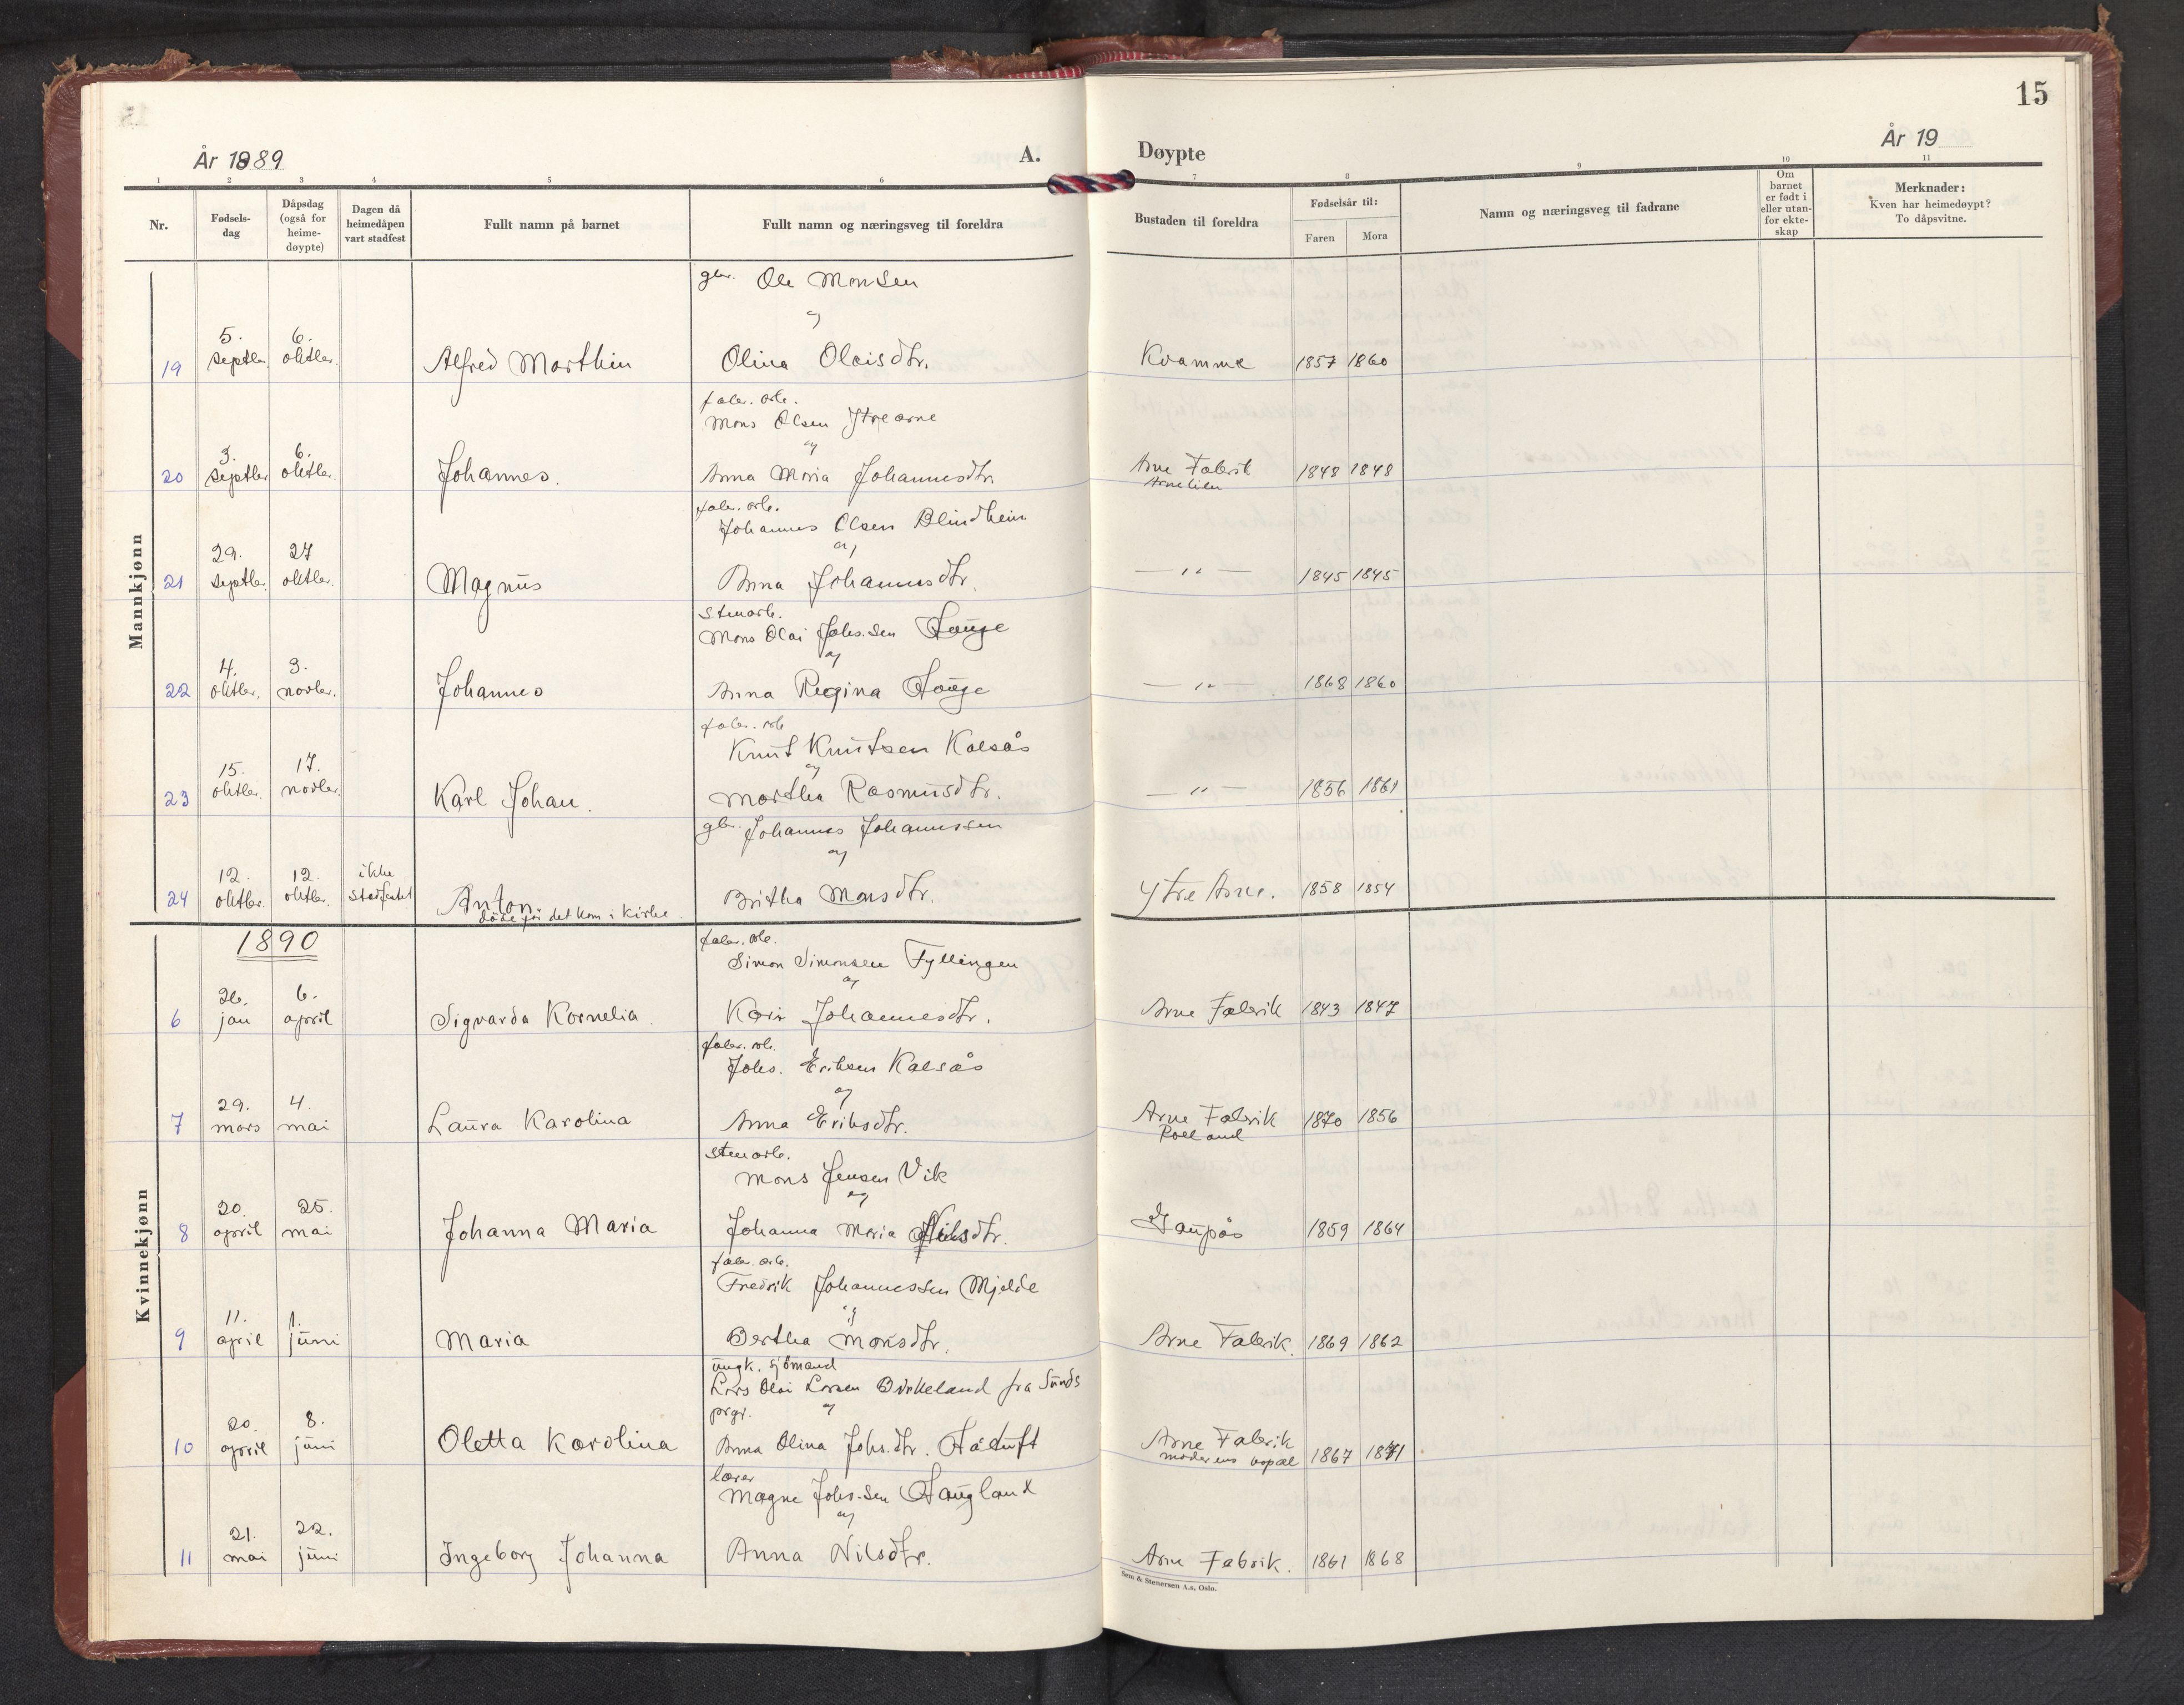 15
År 1889
A.
Døypte
År 19
1 2 3 4 5 6 7 8 9 10 11
Nr.
Fødsels-
dag
Dåpsdag
(også for
heime-
døypte)
Dagen då
heimedåpen
vart stadfest
Fullt namn på barnet
Fullt namn og næringsveg til foreldra
Bustaden til foreldra
Fødselsår til:
Faren Mora
Namn og næringsveg til fadrane
Om
barnet
er født i
eller utan-
for ekte-
skap
Merknader:
Kven har heimedøypt?
To dåpsvitne.
Mannkjønn
gbr. Ole Monsen
og
5. 6.
19 septbr. oktbr. Alfred Marthin Olina Olaisdtr. Kvamme 1857 1860
fabr. arb.
Mons Olsen Ytre arne
og
3. 6.
20 septbr oktbr. Johannes. Anna Maria Johannesdtr. Arne Fabrik 1848 1848
Arnelien
fabr. arb.
Johannes Olsen Blindheim
og
29. 27
21 septbr. oktbr. Magnus Anna Johannesdtr. — " — 1845 1845
Stenarb.
Mons Olai Johs.sen Hauge
og
4. 3.
22 oktbr. novbr. Johannes Anna Regina Hauge — " — 1868 1860
fabr. arb
Knut Knutsen Kalsås
og
15. 17.
23 oktbr. novbr. Karl Johan. Martha Rasmusdtr. — " — 1856 1861
gb. Johannes Johannessen
og
12. 12. ikke
24 oktbr. oktbr. stadfestet Anton. Britha Monsdtr. Ytre Arne. 1858 1854
döde før det kom i kirke.
Kvinnekjønn
1890
fabr. arb.
Simon Simonsen Fyllingen
og
26. 6.
6 jan april Sigvarda Kornelia Kari Johannesdtr. Arne Fabrik 1843 1847
fabr. arb.
Johs. Eriksen Kalsås
og
29. 4.
7 mars mai Laura Karolina Anna Eriksdtr. Arne Fabrik 1870 1856
Stenarb.
Mons Jensen Vik
og
20. 25.
8 april mai Johanna Maria Johanna Maria Nilsdtr. Gaupås 1859 1864
fabr. arb.
Fredrik Johannessen Mjelde
og
11. 1.
9 april juni Maria Bertha Monsdtr. Arne Fabrik. 1869 1862
ungk. sjömand
Lars Olai Larsen Birkeland fra Sunds
prgj. og
20. 8.
10 april juni Oletta Karolina Anna Olina Johs.dtr. Arne Fabrik 1867 1871
moderens bopæl
lærer
Magne Johs.sen Haugland
og
21. 22.
11 mai juni Ingeborg Johanna Anna Nilsdtr. Arne Fabrik. 1861 1868
Sem & Stenersen A.s, Oslo.